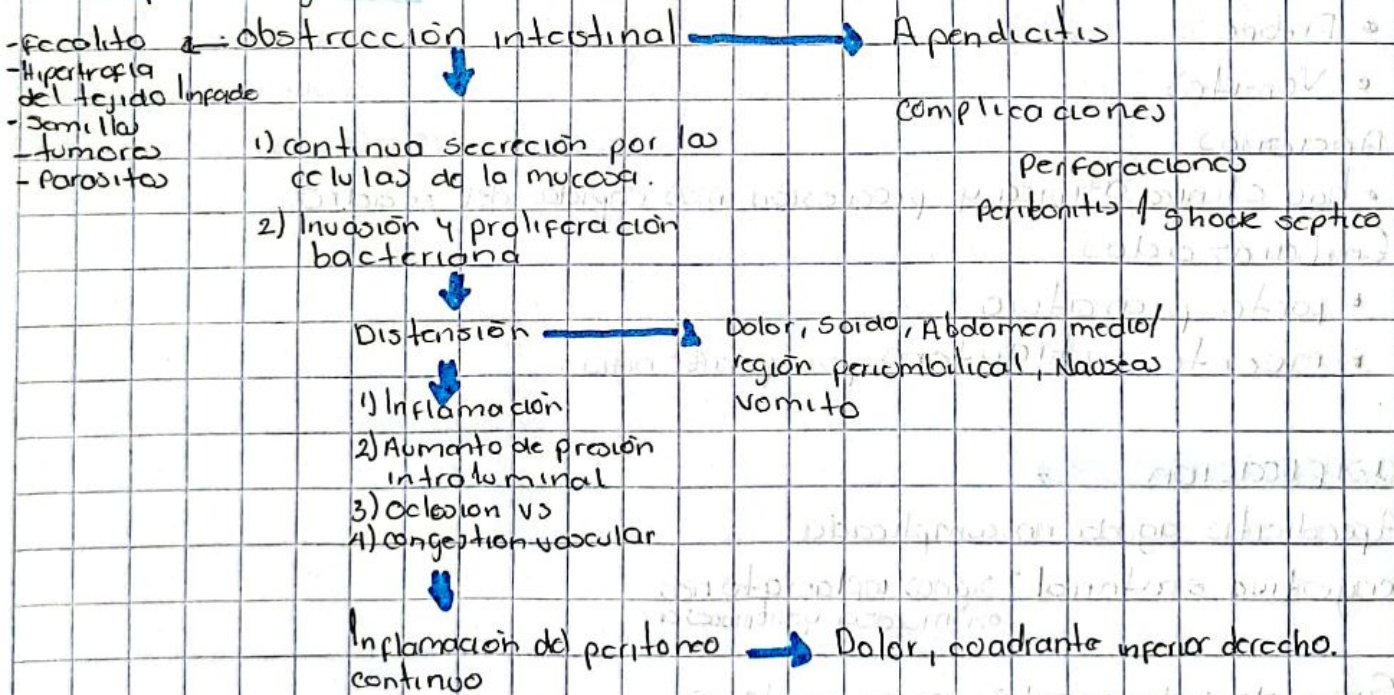 -Fecalito
-Hipertrofia
del tejido linfade
-Semillas
-tumores
-Parasitos
obstrucción intestinal
Apendicitis
complicaciones
Perforaciones
Peritonitis / Shock septico
1) continua secreción por las
celulas de la mucosa.
2) Invasión y proliferación
bacteriana
Distensión
Dolor, Sordo, Abdomen medio/
región periumbilical, Nauseas
vomito
1) Inflamación
2) Aumento de presión
intraluminal
3) Oclesion vs
4) congestion vascular
Inflamación del peritoneo
continuo
Dolor, cuadrante inferior derecho.